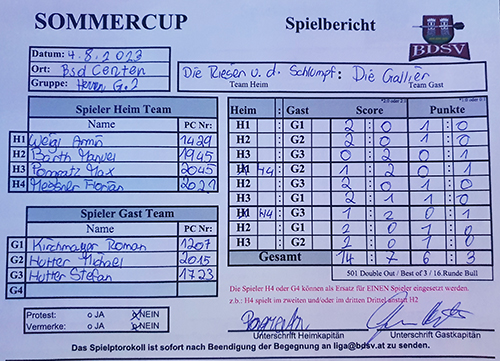 SOMMERCUP
Spielbericht
BDSV
Datum: 4.8.2023
Ort: Bsd Center
Gruppe: Herrn G.2
Die Riesen u. d. Schlumpf : Die Gallier
Team Heim Team Gast
Spieler Heim Team
Name PC Nr:
H1 Weigl Armin 1439
H2 Barth Manuel 1945
H3 Max 2045
H4 Messner Florian 2021
Spieler Gast Team
Name PC Nr:
G1 Kirchmayer Roman 1207
G2 Hutter Michael 2015
G3 Hutter Stefan 1723
G4
Heim : Gast Score Punkte
H1 : G1 2 : 0 1 : 0
H2 : G2 2 : 0 1 : 0
H3 : G3 0 : 2 0 : 1
H1 H4 : G2 1 : 2 0 : 1
H2 : G3 2 : 0 1 : 0
H3 : G1 2 : 1 1 : 0
H1 H4 : G3 1 : 2 0 : 1
H2 : G1 2 : 0 1 : 0
H3 : G2 2 : 0 1 : 0
Gesamt 14 : 7 6 : 3
501 Double Out / Best of 3 / 16.Runde Bull
Die Spieler H4 oder G4 können als Ersatz für EINEN Spieler eingesetzt werden.
z.b.: H4 spielt im zweiten und/oder im dritten Drittel anstatt H2
Protest: o JA o NEIN
Vermerke: o JA o NEIN
Unterschrift Heimkapitän Unterschrift Gastkapitän
Das Spielptorokoll ist sofort nach Beendigung der Begegnung an liga@bdsv.at zu senden.